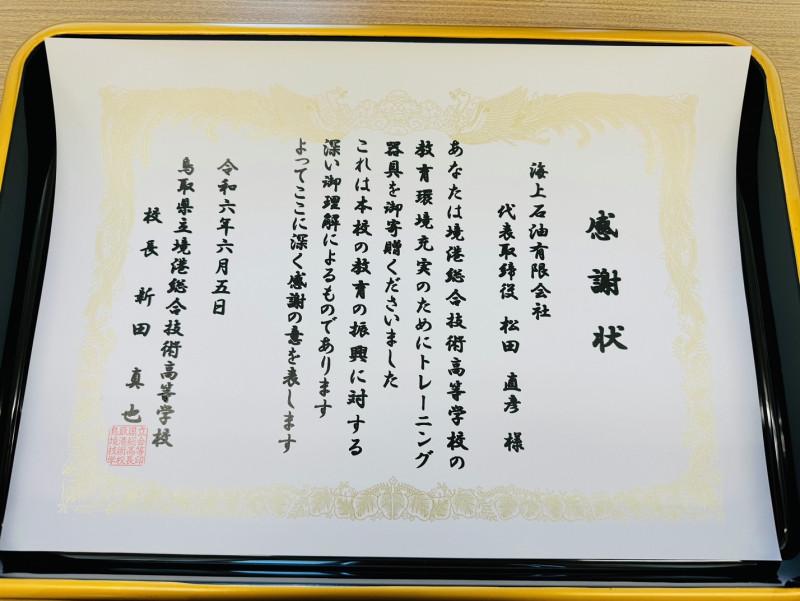 感謝状
海上石油有限会社
代表取締役 松田 直彦 様
あなたは境港総合技術高等学校の
教育環境充実のためにトレーニング
器具を御寄贈くださいました
これは本校の教育の振興に対する
深い御理解によるものであります
よってここに深く感謝の意を表します
令和六年六月五日
鳥取県立境港総合技術高等学校
校長 新田 真也